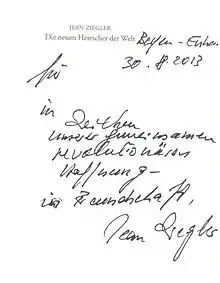 JEAN ZIEGLER
Die neuen Herrscher der Welt
30. 8 2013
für
in Zeichen
unserer gemeinsamen
revolutionären
Hoffnung –
in Freundschaft,
Jean Ziegler